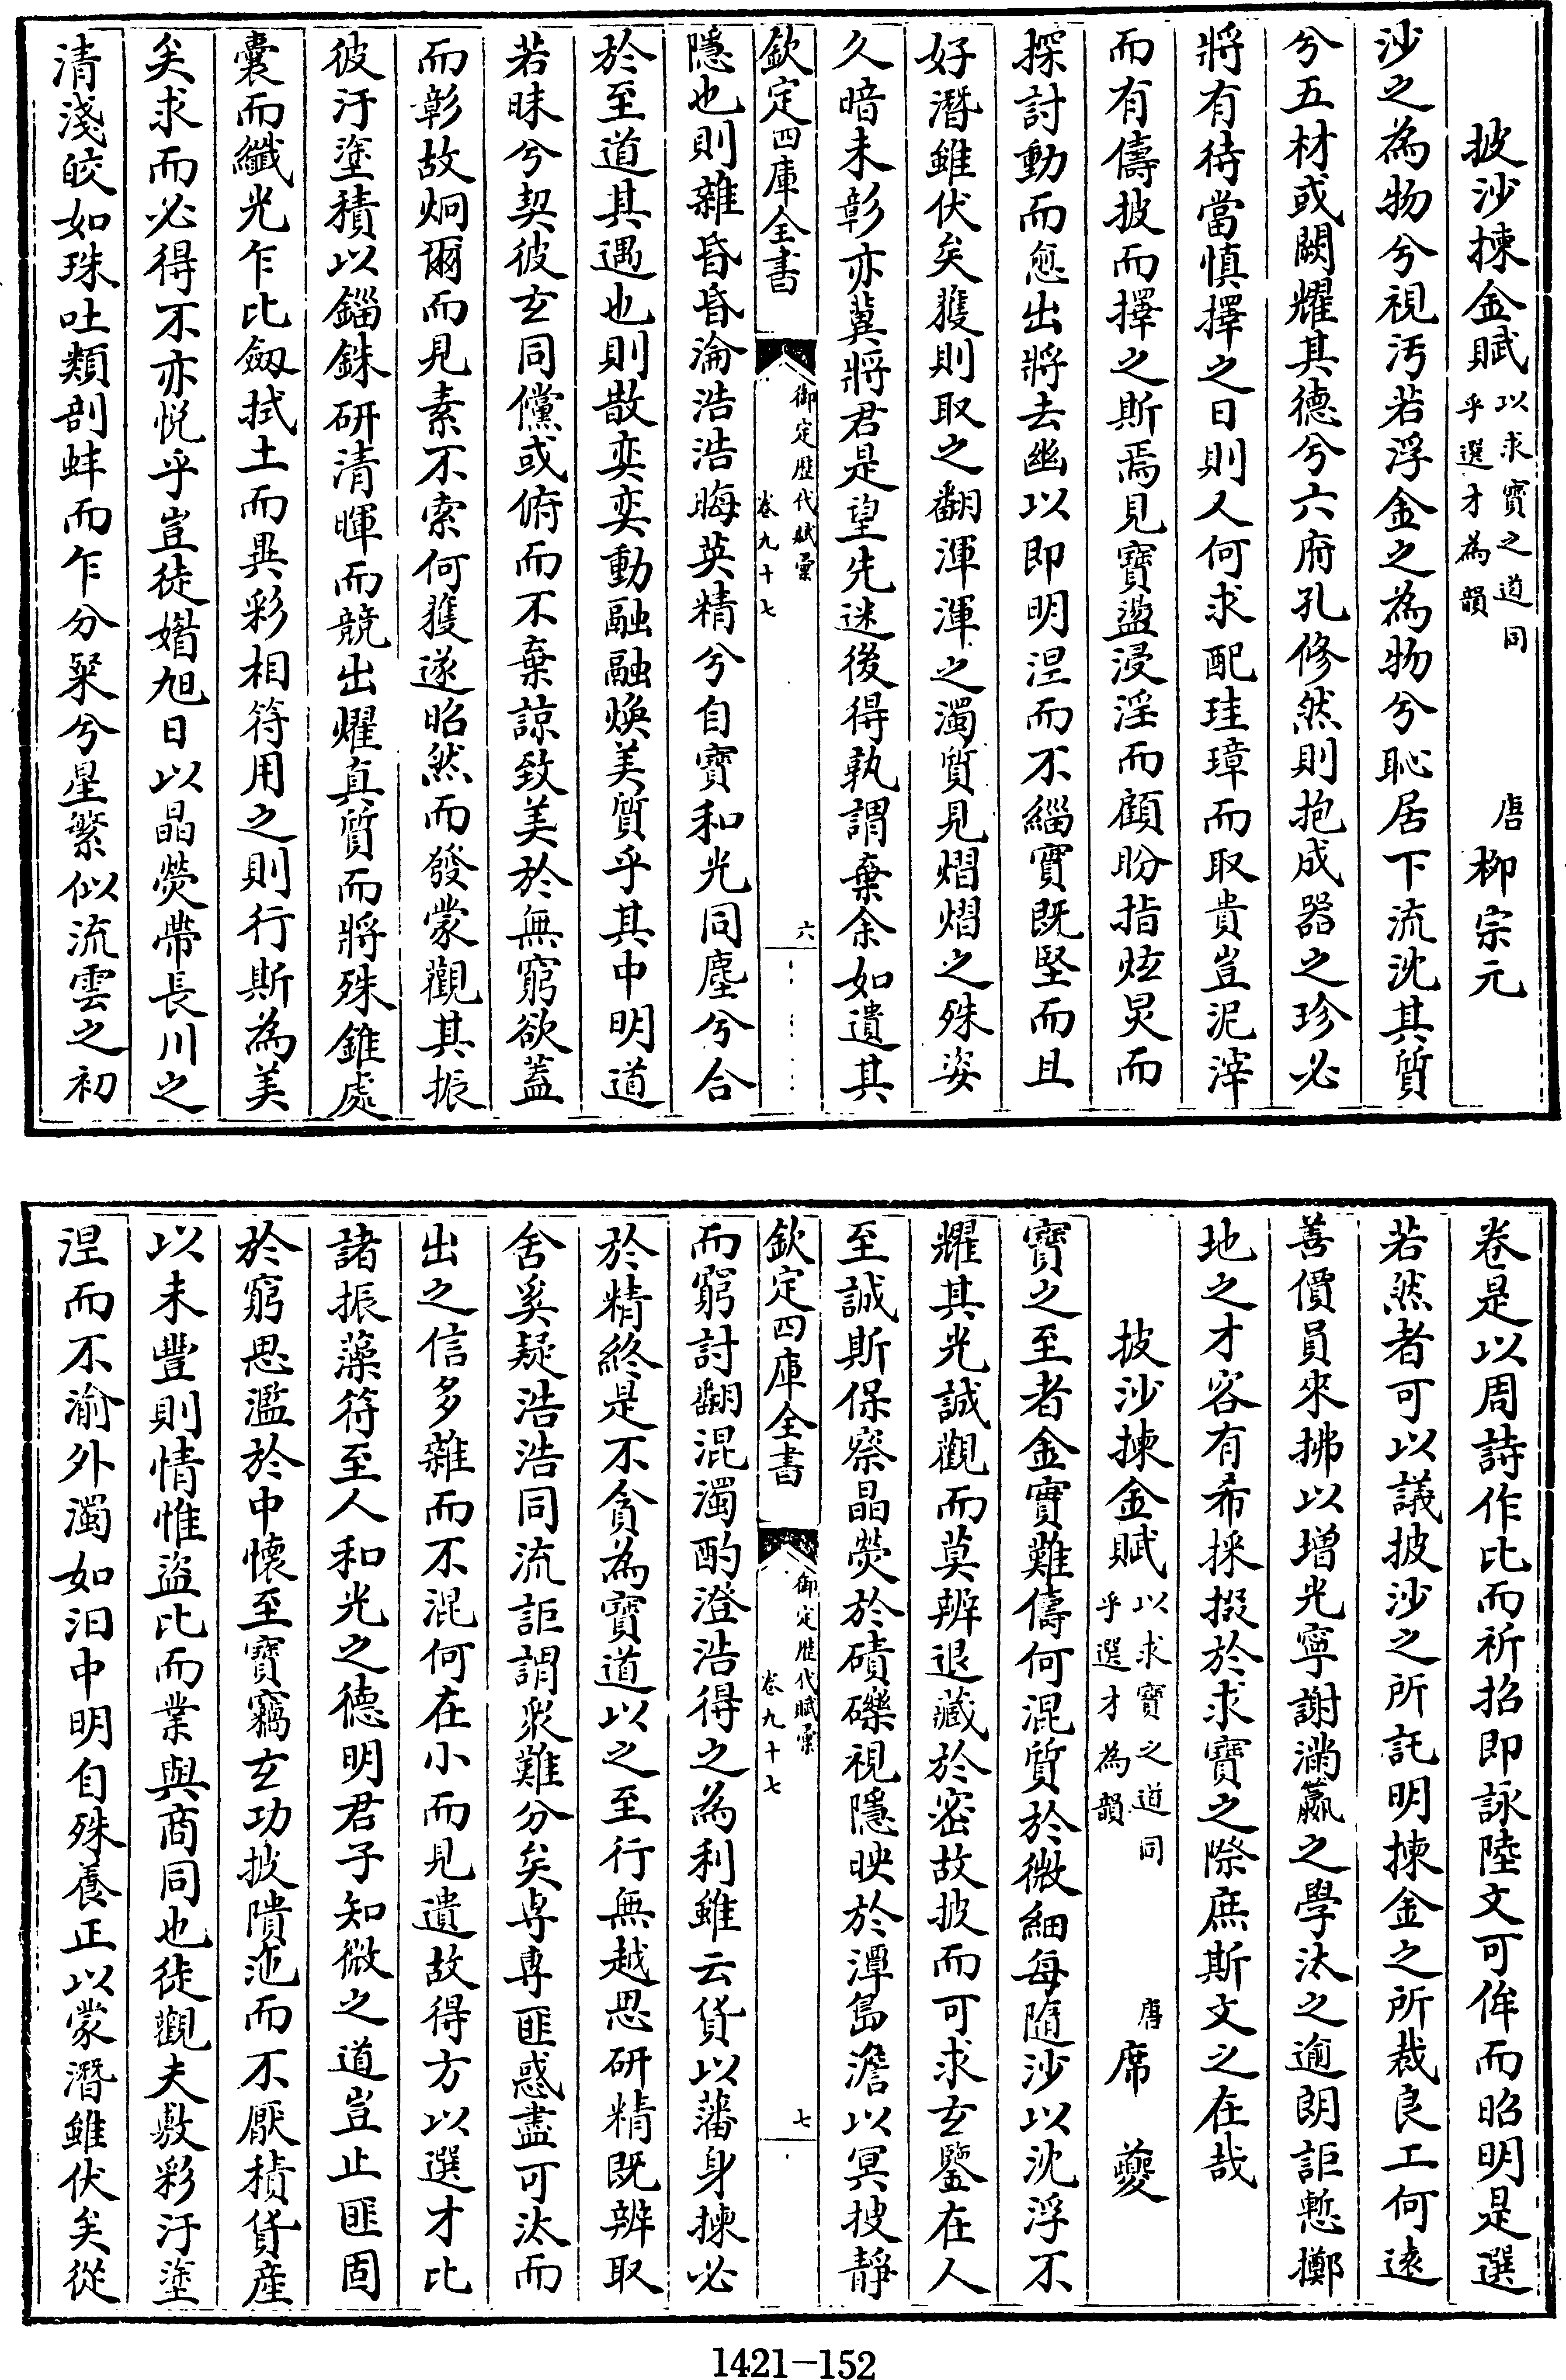 披沙揀金賦以求寶之道同乎選才為韻 唐柳宗元
沙之為物兮視汚若浮金之為物兮恥居下流沈其質
兮五材或闕耀其德兮六府孔修然則抱成器之珍必
將有待當慎擇之日則人何求配珪璋而取貴豈泥滓
而有儔披而擇之斯焉見寶盪浸淫而顧盼指炫炅而
探討動而愈出將去幽以即明涅而不緇實既堅而且
好潛雖伏矣獲則取之翻渾渾之濁質見熠熠之殊姿
久暗未彰亦冀將君是望先迷後得孰謂棄余如遺其
欽定四庫全書 御定歴代賦彙 卷九十七 六
隱也則雜昏昏淪浩浩晦英精兮自寶和光同塵兮合
於至道其遇也則散奕奕動融融煥美質乎其中明道
若昧兮契彼玄同儻或俯而不棄諒致美於無窮欲蓋
而彰故炯爾而見素不索何獲遂昭然而發蒙觀其振
彼汙塗積以錙銖研清暉而競出耀真質而將殊錐處
囊而纖光乍比劔拭土而異彩相符用之則行斯為美
矣求而必得不亦悦乎豈徒媚旭日以晶熒帶長川之
清淺皎如珠吐類剖蚌而乍分粲兮星繁似流雲之初
卷是以周詩作比而祈招即詠陸文可侔而昭明是選
若然者可以議披沙之所託明揀金之所裁良工何遠
善價員來拂以增光寧謝滿籯之學汰之逾朗詎慙擲
地之才容有希採掇於求寶之際庶斯文之在哉
披沙揀金賦以求寶之道同乎選才為韻 唐席夔
寶之至者金實難儔何混質於微細每隨沙以沈浮不
耀其光誠觀而莫辨退藏於密故披而可求玄鑒在人
至誠斯保察晶熒於磧礫視隱映於潭島澹以冥搜靜
欽定四庫全書 御定歴代賦彙 卷九十七 七
而窮討翻混濁酌澄浩得之為利雖云貨以藩身揀必
於精終是不貪為寶道以之至行無越思研精既辨取
舍奚疑浩浩同流詎謂衆難分矣専専匪惑盡可汰而
出之信多雜而不混何在小而見遺故得方以選才比
諸振藻符至人和光之德明君子知微之道豈止匪固
於窮思濫於中懷至寶竊玄功披隤沲而不厭積貨産
以未豐則情惟盜比而業與商同也徒觀夫敷彩汙塗
涅而不渝外濁如汩中明自殊養正以蒙潛雖伏矣從
1421-152